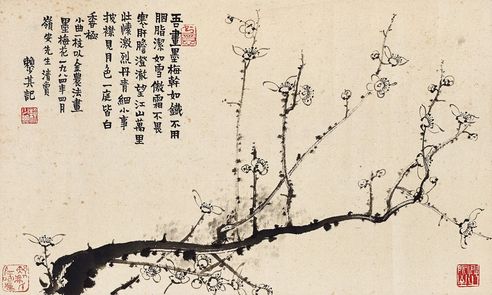 吾畫墨梅幹如鐵不用
胭脂潔如雪傲霜不畏
寒肝膽澄澈望江山萬里
壯懷激烈丹青細小事
披襟見月色一庭皆白
香極
小曲一枝以金農法畫
墨梅花一九八四年四月
先生清賞
其記